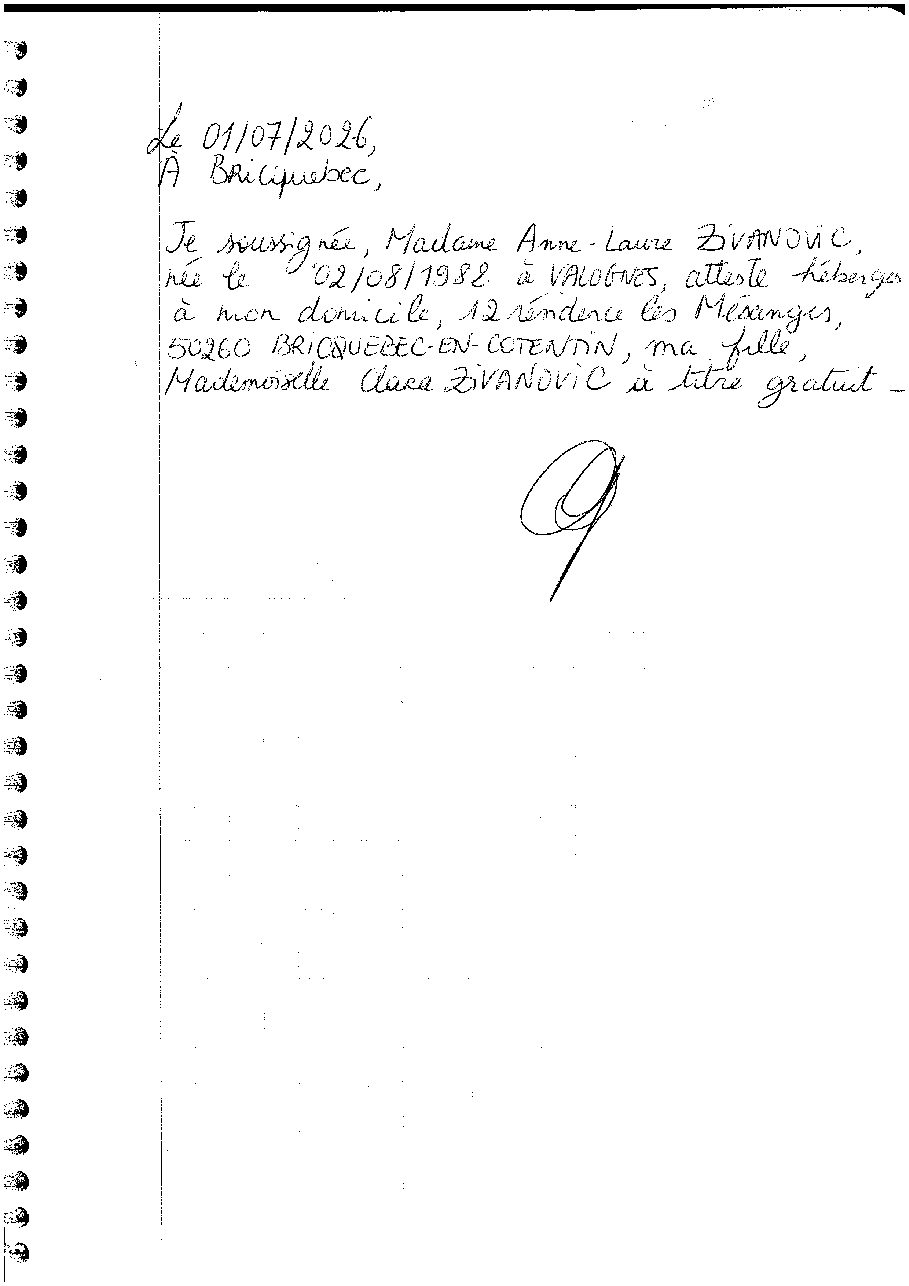 Le 01/07/2026,
À Bricquebec,
Je soussignée, Madame Anne-Laure ZIVANOVIC,
née le 02/08/1982 à VALOGNES, atteste héberger
à mon domicile, 12 résidence les Mésanges,
50260 BRICQUEBEC-EN-COTENTIN, ma fille,
Mademoiselle Clara ZIVANOVIC à titre gratuit -